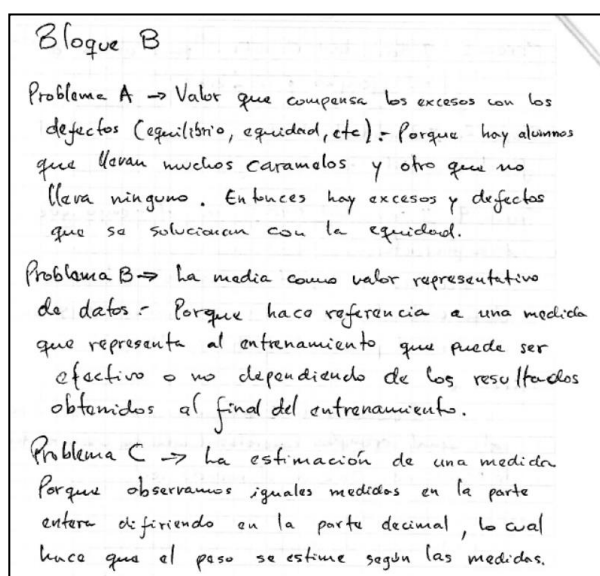 Bloque B
Problema A → Valor que compensa los excesos con los
defectos (equilibrio, equidad, etc).- Porque hay alumnos
que llevan muchos caramelos y otro que no
lleva ninguno. Entonces hay excesos y defectos
que se solucionan con la equidad.
Problema B → La media como valor representativo
de datos.- Porque hace referencia a una medida
que representa al entrenamiento que puede ser
efectivo o no dependiendo de los resultados
obtenidos al final del entrenamiento.
Problema C → La estimación de una medida
Porque observamos iguales medidas en la parte
entera difiriendo en la parte decimal, lo cual
hace que el peso se estime según las medidas.